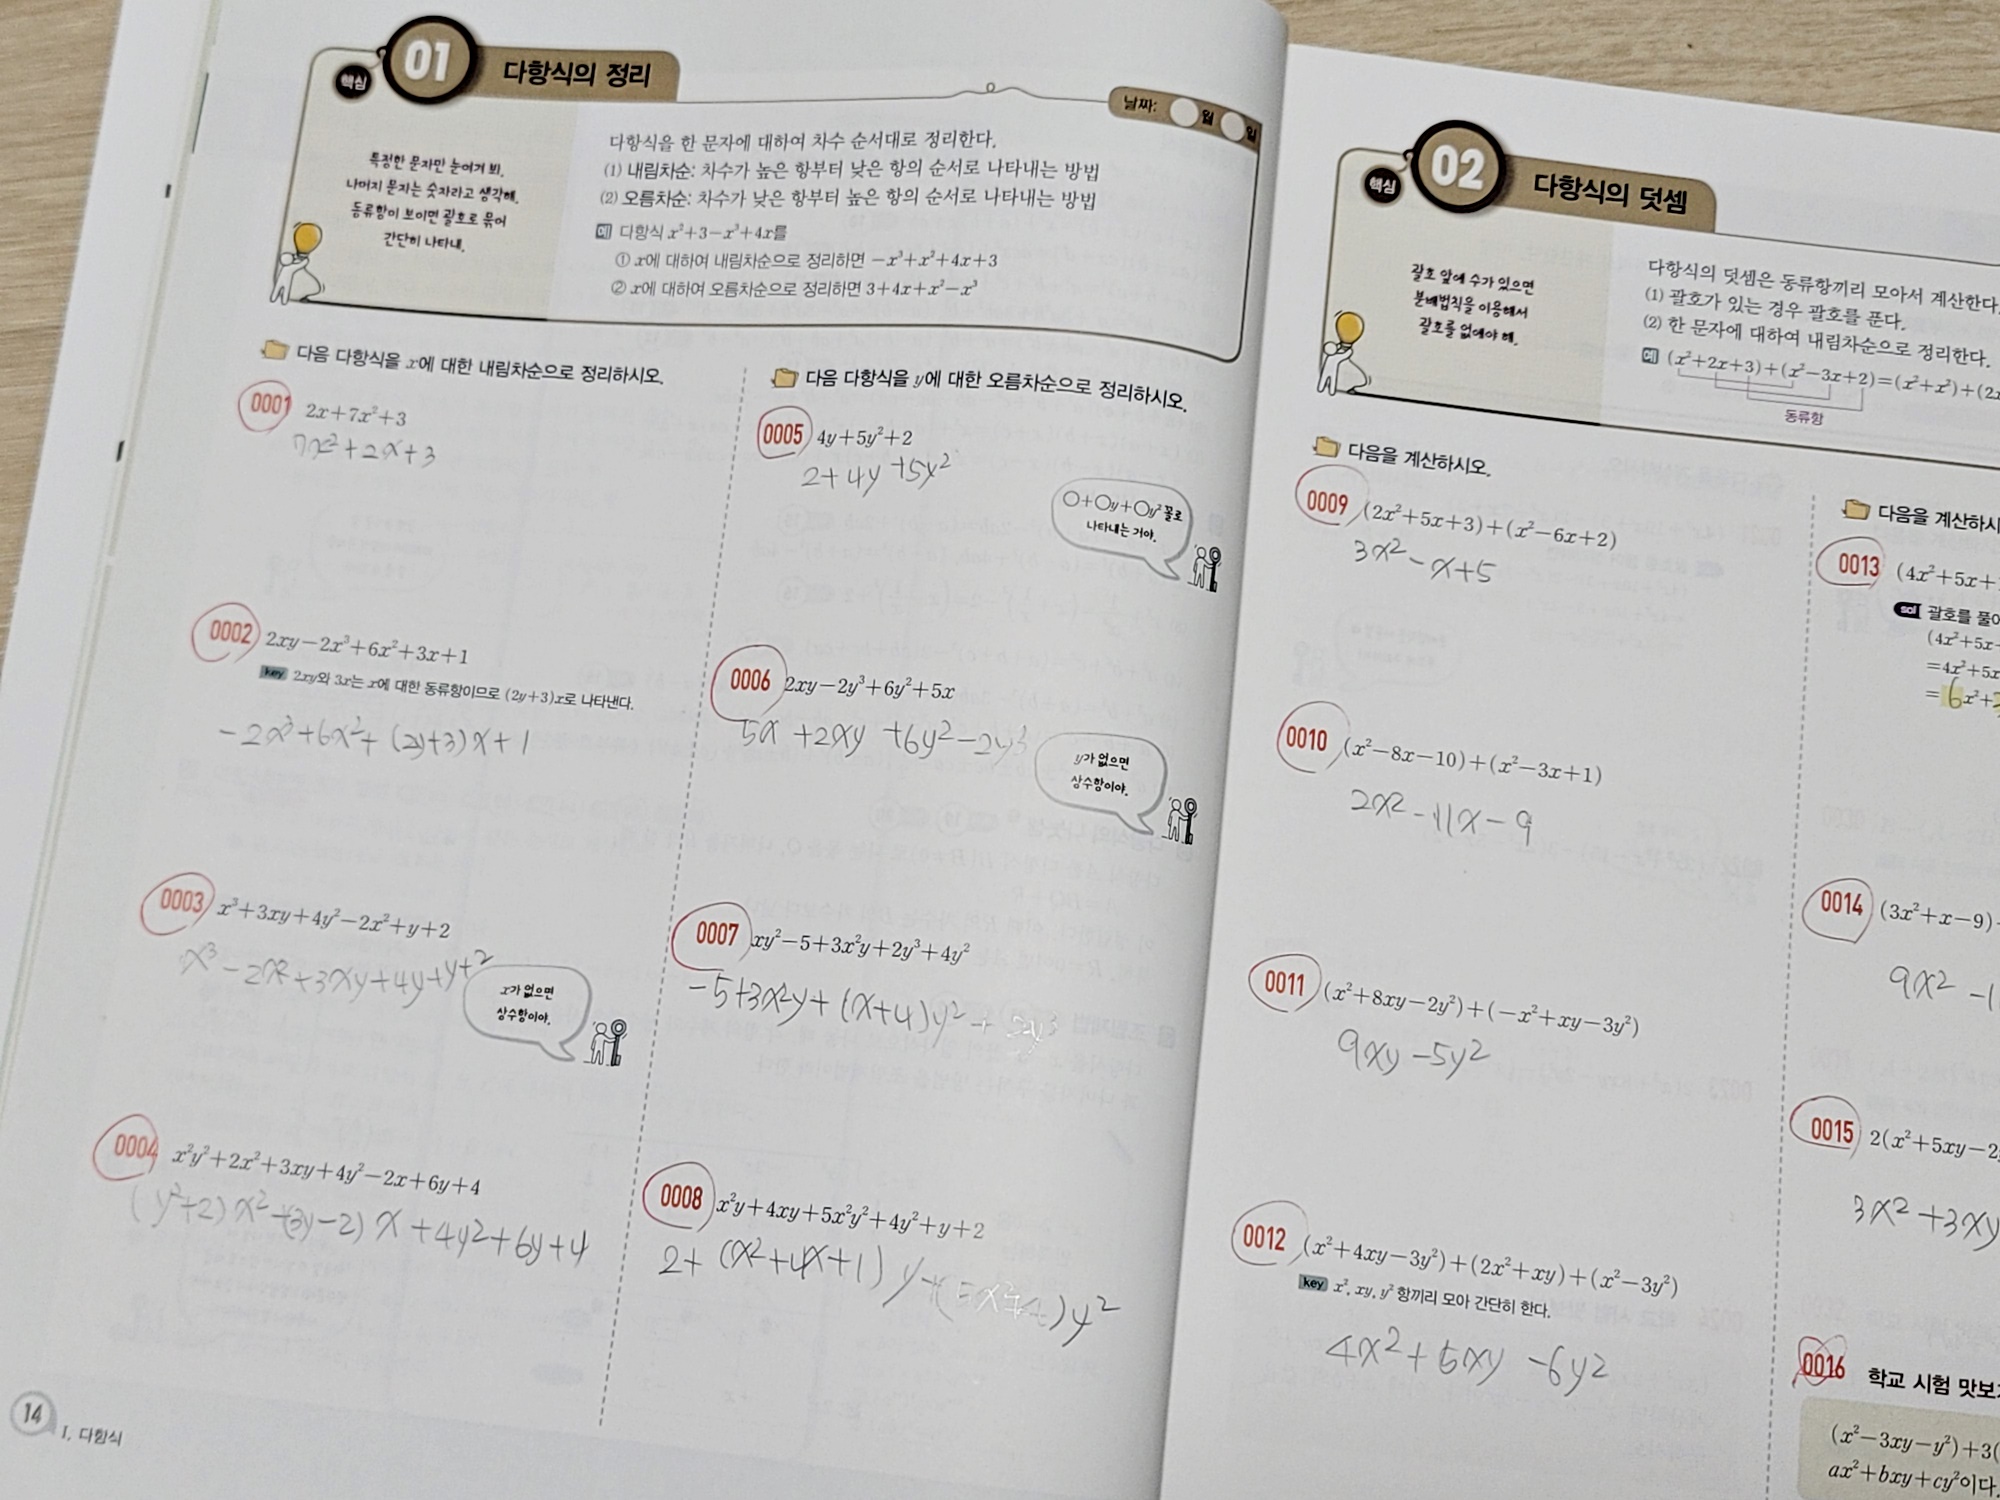 핵심 01 다항식의 정리
날짜: 월 일
특정한 문자만 눈여겨 봐.
나머지 문자는 숫자라고 생각해.
동류항이 보이면 괄호로 묶어
간단히 나타내.
다항식을 한 문자에 대하여 차수 순서대로 정리한다.
(1) 내림차순: 차수가 높은 항부터 낮은 항의 순서로 나타내는 방법
(2) 오름차순: 차수가 낮은 항부터 높은 항의 순서로 나타내는 방법
예 다항식 x²+3−x³+4x를
① x에 대하여 내림차순으로 정리하면 −x³+x²+4x+3
② x에 대하여 오름차순으로 정리하면 3+4x+x²−x³
다음 다항식을 x에 대한 내림차순으로 정리하시오.
0001 2x+7x²+3
7x²+2x+3
0002 2xy−2x³+6x²+3x+1
key 2xy와 3x는 x에 대한 동류항이므로 (2y+3)x로 나타낸다.
−2x³+6x²+(2y+3)x+1
0003 x³+3xy+4y²−2x²+y+2
x³−2x²+3xy+4y+y+2
x가 없으면
상수항이야.
0004 x²y²+2x²+3xy+4y²−2x+6y+4
(y²+2)x²+(3y−2)x+4y²+6y+4
다음 다항식을 y에 대한 오름차순으로 정리하시오.
0005 4y+5y²+2
2+4y+5y²
○+○y+○y² 꼴로
나타내는 거야.
0006 2xy−2y³+6y²+5x
5x+2xy+6y²−2y³
y가 없으면
상수항이야.
0007 xy²−5+3x²y+2y³+4y²
−5+3x²y+(x+4)y²+2y³
0008 x²y+4xy+5x²y²+4y²+y+2
2+(x²+4x+1)y+(5x²+4)y²
14 I. 다항식
핵심 02 다항식의 덧셈
괄호 앞에 수가 있으면
분배법칙을 이용해서
괄호를 없애야 해.
다항식의 덧셈은 동류항끼리 모아서 계산한다.
(1) 괄호가 있는 경우 괄호를 푼다.
(2) 한 문자에 대하여 내림차순으로 정리한다.
예 (x²+2x+3)+(x²−3x+2)=(x²+x²)+(2x
동류항
다음을 계산하시오.
0009 (2x²+5x+3)+(x²−6x+2)
3x²−x+5
0010 (x²−8x−10)+(x²−3x+1)
2x²−11x−9
0011 (x²+8xy−2y²)+(−x²+xy−3y²)
9xy−5y²
0012 (x²+4xy−3y²)+(2x²+xy)+(x²−3y²)
key x², xy, y² 항끼리 모아 간단히 한다.
4x²+5xy−6y²
다음을 계산하시
0013 (4x²+5x+
sol 괄호를 풀어
(4x²+5x
=4x²+5x
=6x²+
0014 (3x²+x−9)
9x²−1
0015 2(x²+5xy−2
3x²+3xy
0016 학교 시험 맛보
(x²−3xy−y²)+3(
ax²+bxy+cy²이다.